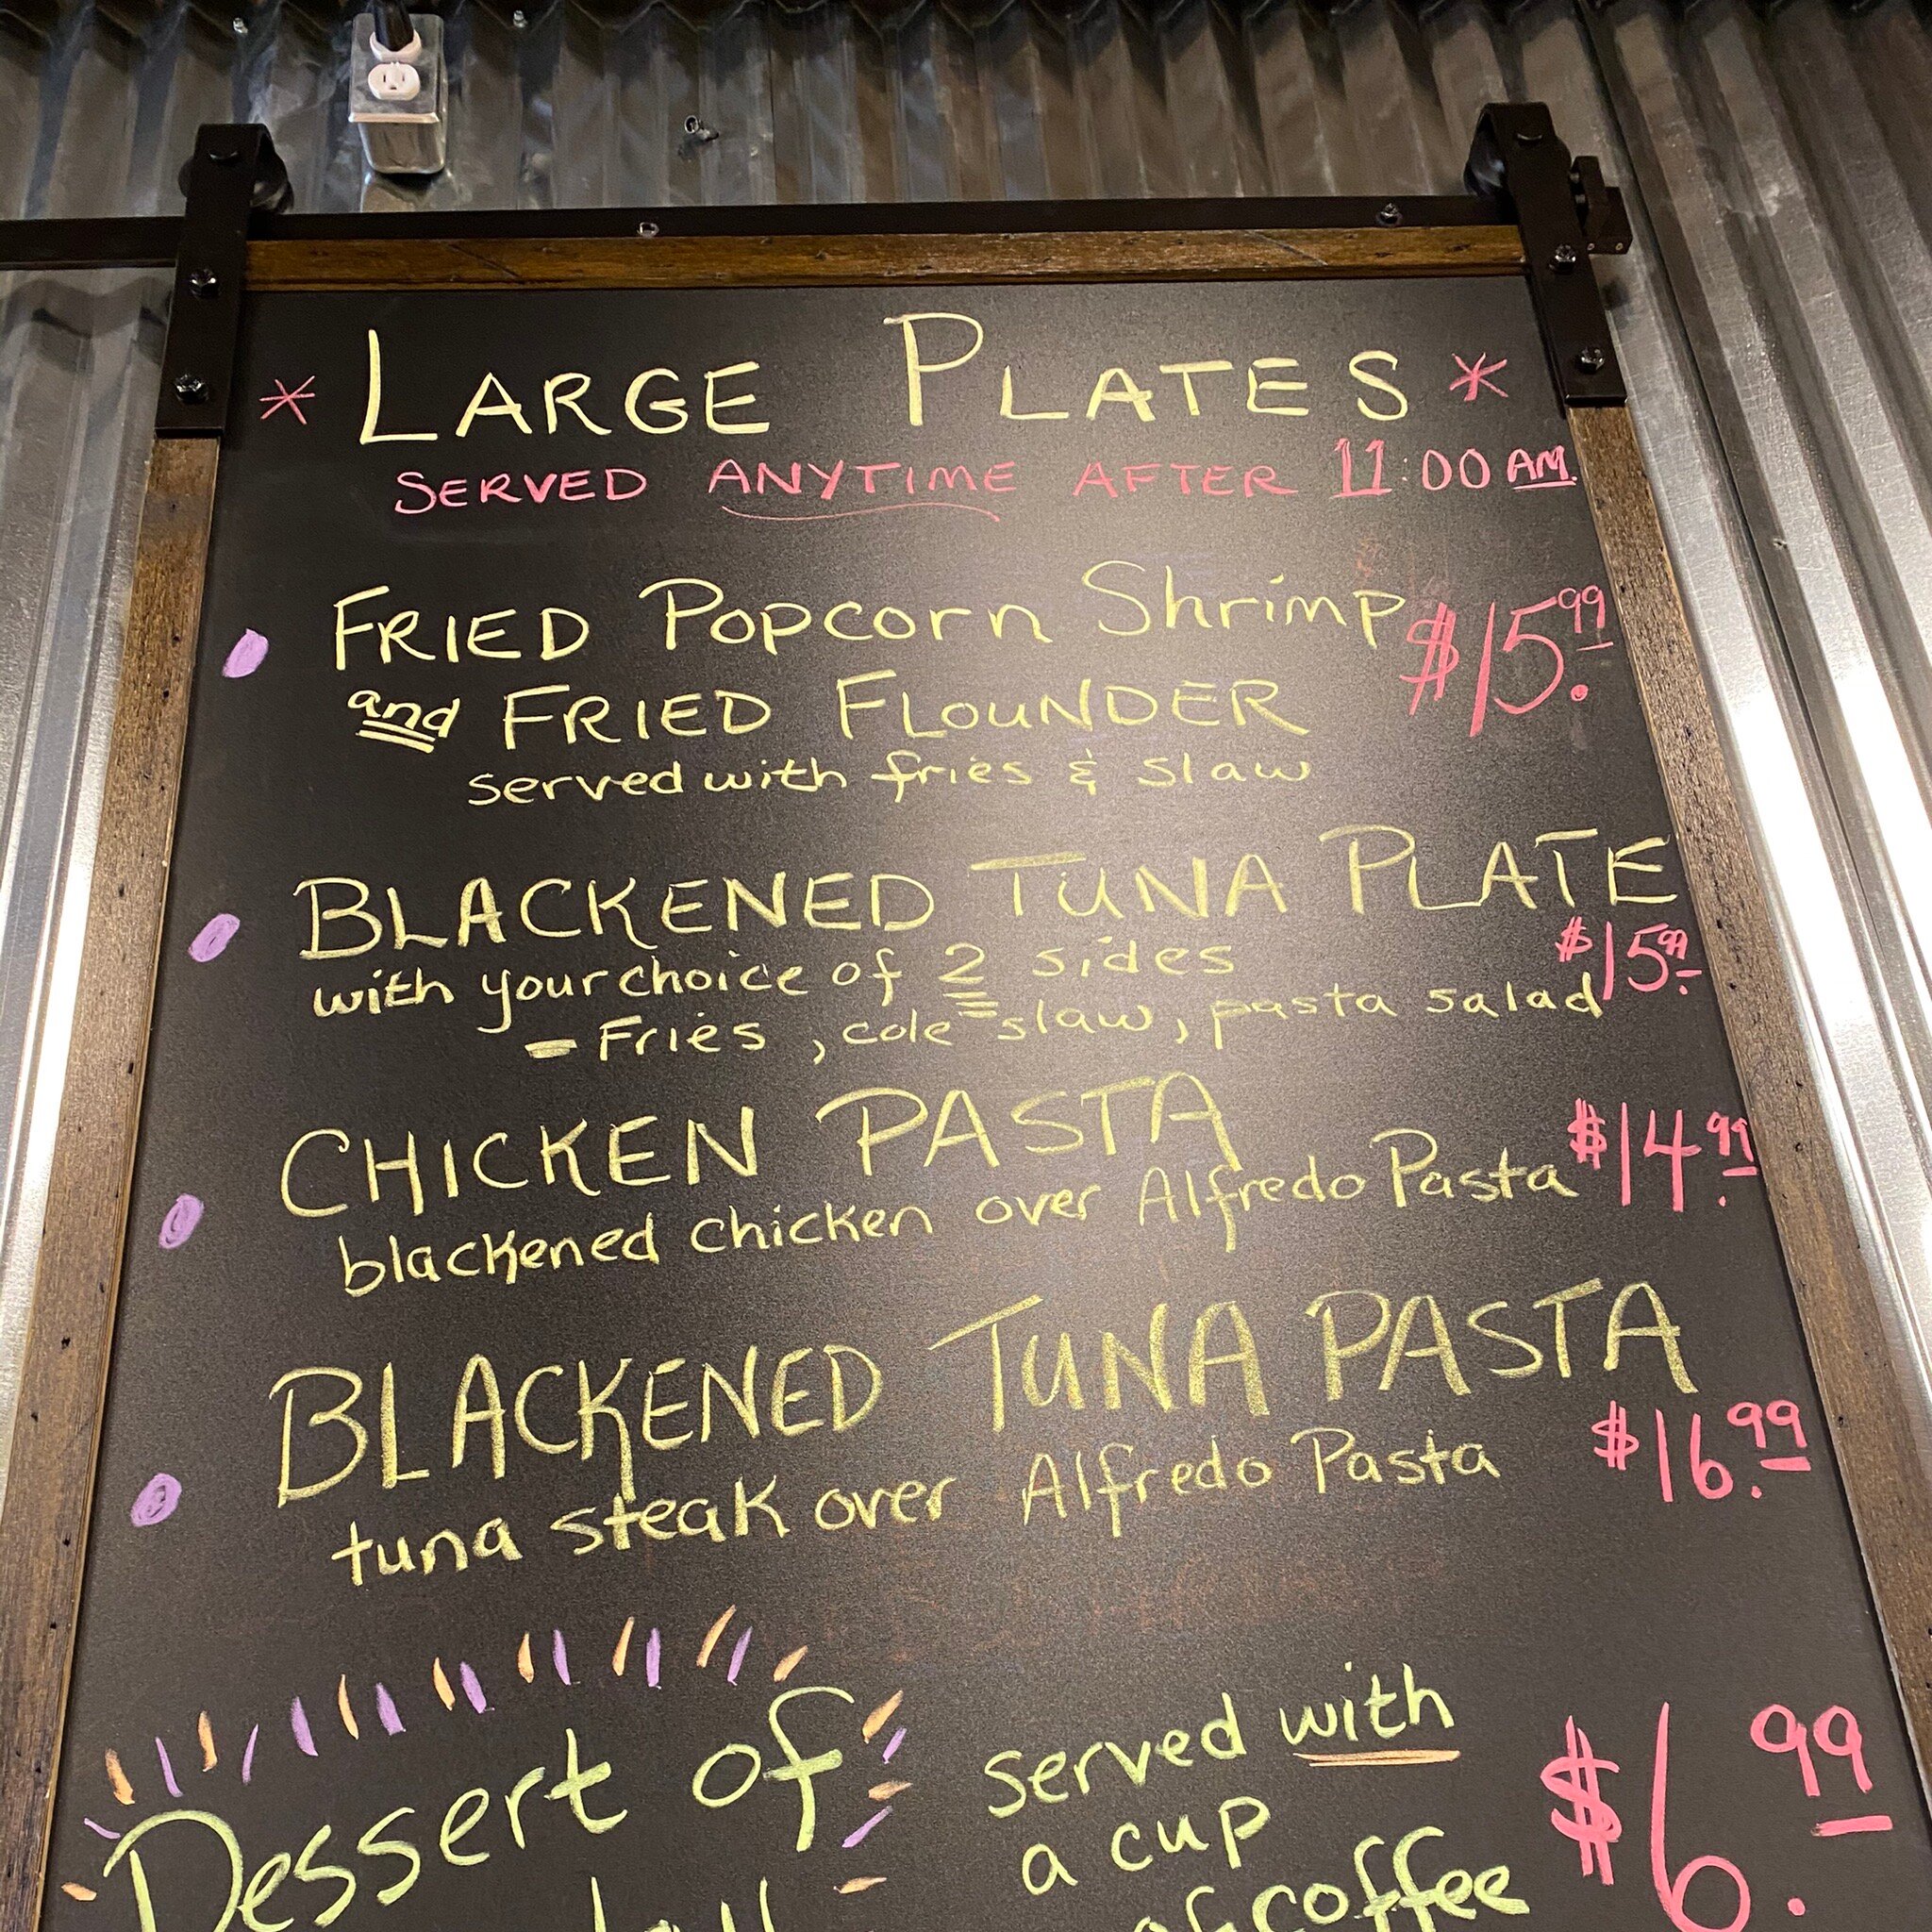 * LARGE PLATES *
SERVED ANYTIME AFTER 11:00 AM.
FRIED Popcorn Shrimp $15.99
and FRIED FLOUNDER
served with fries & slaw
BLACKENED TUNA PLATE
with your choice of 2 sides $15.99
- Fries, cole slaw, pasta salad
CHICKEN PASTA
blackened chicken over Alfredo Pasta $14.99
BLACKENED TUNA PASTA
tuna steak over Alfredo Pasta $16.99
Dessert of
served with
a cup
of coffee
$6.99